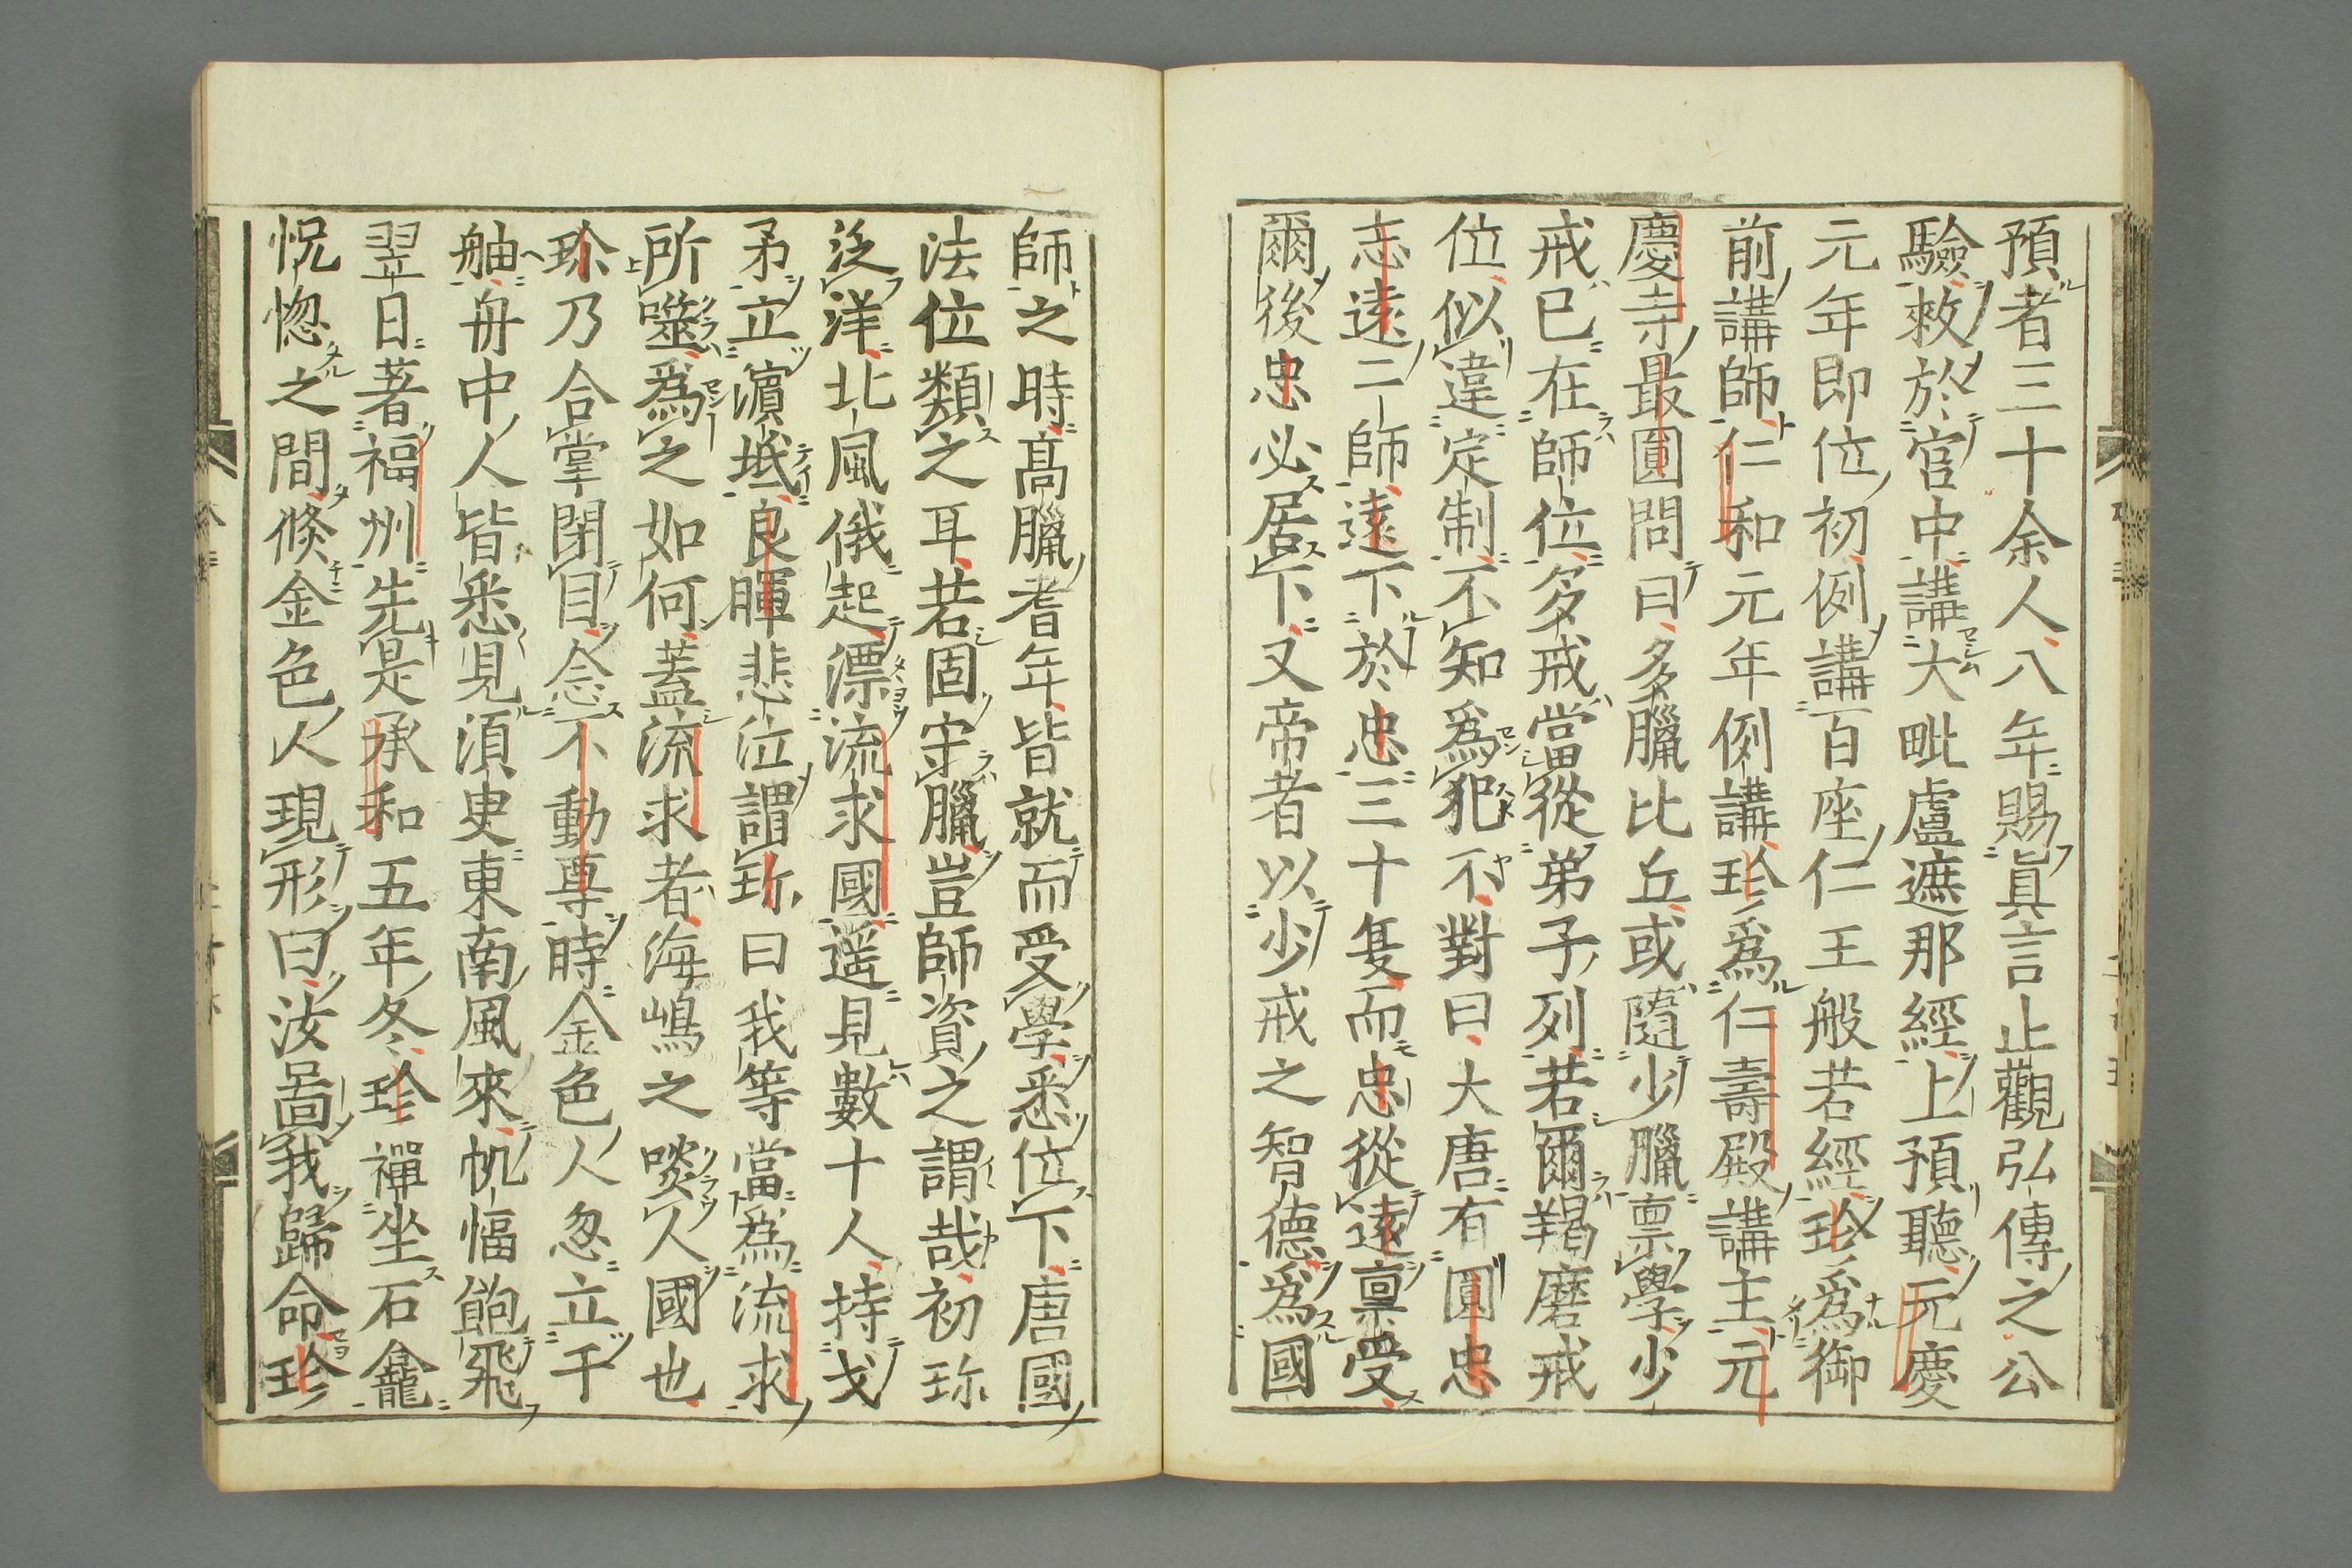 預者三十余人八年賜眞言止觀弘傳之公
驗敕於官中講大毗盧遮那經上預聽元慶
元年即位初例講百座仁王般若經珍爲御
前講師仁和元年例講珍爲仁壽殿講主元
慶寺最圓問曰多臘比丘或隨少臘禀學少
戒已在師位多戒當從弟子列若爾羯磨戒
位似違定制不知爲犯不對曰大唐有圓忠
志遠二師遠下於忠三十隻而忠從遠禀受
爾後忠必居下又帝者以少戒之智德爲國
師之時高臘耆年皆就而受學悉位下唐國
法位類之耳若固守臘豈師資之謂哉初珎
泛洋北風俄起漂流求國遥見數十人持戈
矛立濵坻良暉悲泣謂珎曰我等當爲流求
所噬爲之如何蓋流求者海嶋之啖人國也
珎乃合掌閉目念不動尊時金色人忽立于
舳舟中人皆悉見湏臾東南風來帆幅飽飛
翌日著福州先是承和五年冬珍禪坐石龕
怳惚之間倐金色人現形曰汝啚我歸命珍